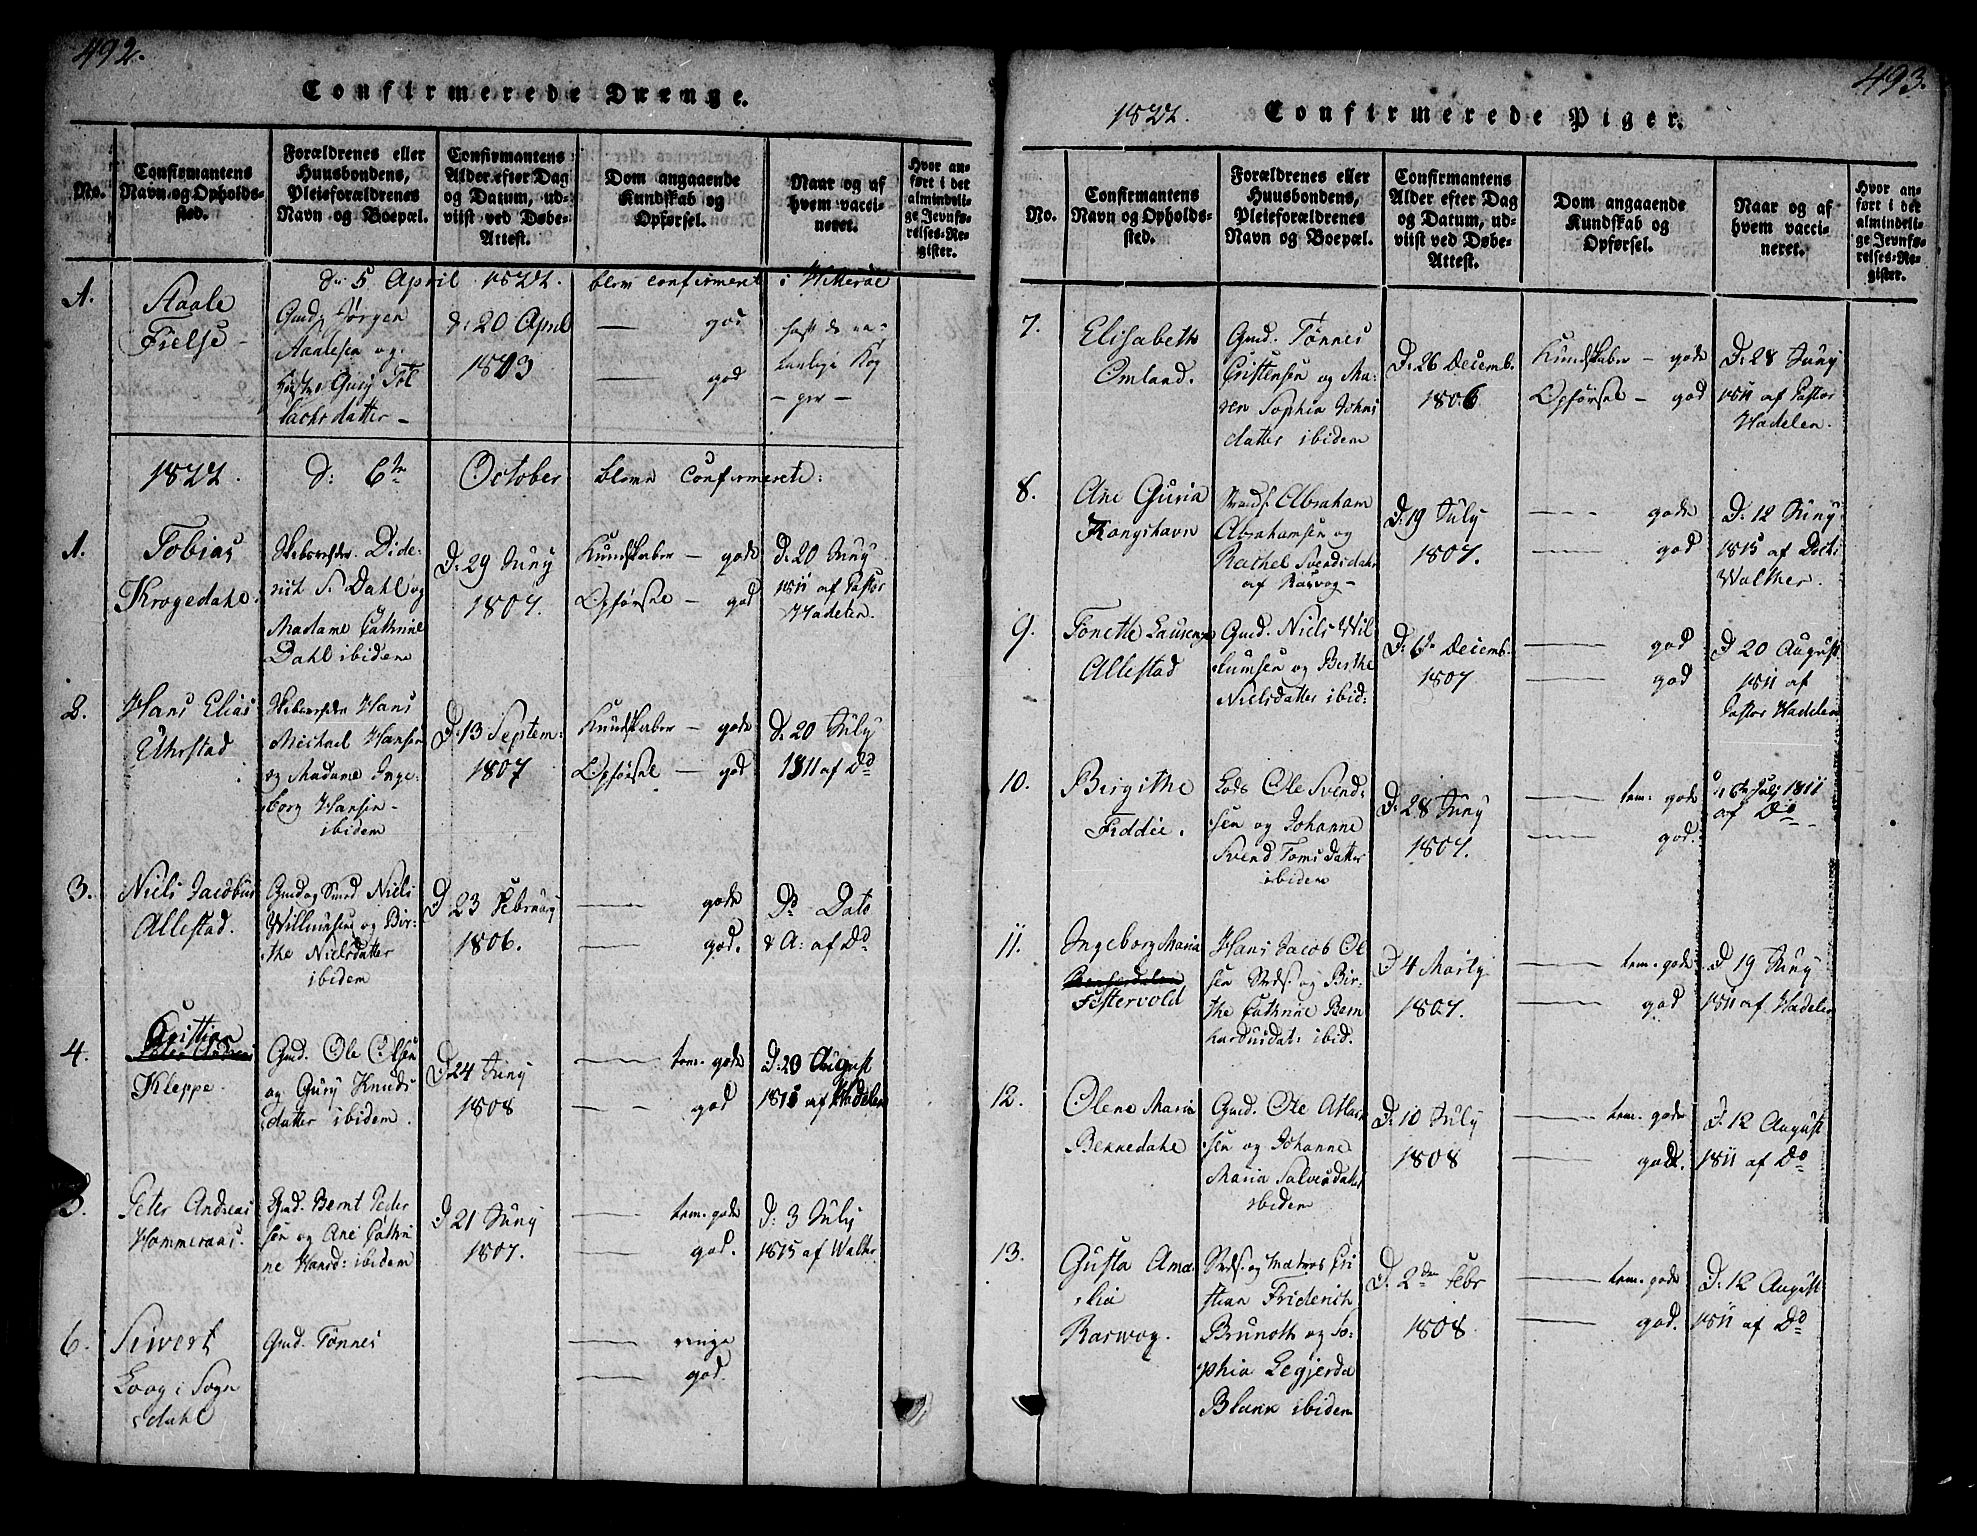 492.
Confirmerede Drænge.
No.
Confirmantens
Navn og Opholds-
sted.
Forældrenes eller
Huusbondens,
Pleieforældrenes
Navn og Boepæl.
Confirmantens
Alder efter Dag
og Datum, ud-
viist ved Døbe-
Attest.
Dom angaaende
Kundskab og
Opførsel.
Naar og af
hvem vacci-
neret.
Hvor an-
ført i det
almindeli-
ge Jevnfø-
relses-Re-
gister.
d: 5 April 1822. blev confirmeret i Hitterøe
1.
Staale
Fielse
Gmd Jørgen
Aaalesen og
Gury Tol
lachsdatter
d: 20 April
1803
god
god
1822. d: 6te October bleve Confirmerete:
1.
Tobias
Krogedahl
Dide-
rich S. Dahl og
Madame Cathrine
Dahl ibidem
D: 29 Juny
1807.
Kundskaber - gode
Opførsel - god
D: 20 Juny
1811 af Pastor
Hadelen.
2.
Hans Elias
Uhrstad
Hans
Michael Hansen
og Madame Inge-
borg Hansen
ibidem
D: 13 Septem:
1807
Kundskaber - gode
Opførsel - god
D: 20 July
1811 af Do
3.
Niels Jacobus
Allestad.
Gmd og Smed Niels
Willumsen og Bir-
the Nielsdatter
ibidem
D 23 Februay
1806.
gode
god.
Do Dato
& A: af Do
4.
Cristian
Kleppe
Gmd. Ole Olsen
og Gury Knuds
datter ibidem.
D: 24 Juny
1808
tem. gode
god
D: 20 August
1811 af Hadelen
5.
Peter Andreas
Hommeraas.
Gmd. Bernt Peder
sen og Ane Cathri
ne Hansd: ibidem
D 21 Juny
1807.
tem. gode
god.
D: 3 July
1815 af Walter
6.
Siwert
Loog i Sogn
dahl
Gmd. Tønnes
ringe
god.
493.
1822. Confirmerede Piger.
No.
Confirmantens
Navn og Opholds-
sted.
Forældrenes eller
Huusbondens,
Pleieforældrenes
Navn og Boepæl.
Confirmantens
Alder efter Dag
og Datum, ud-
viist ved Døbe-
Attest.
Dom angaaende
Kundskab og
Opførsel.
Naar og af
hvem vacci-
neret.
Hvor an-
ført i det
almindeli-
ge Jevnfø-
relses-Re-
gister.
7.
Elisabeth
Omland.
Gmd. Tønnes
Cristensen og Ma-
ren Sophia Johns
datter ibidem
D: 26 Decemb.
1806
Kundskaber - gode
Opførsel - god
D: 28 Juny
1811 af Pastor
Hadelen.
8.
Ane Guria
Kongshavn
Abraham
Abrahamsen og
Rachel Svendsdatr
af Rasvog
D: 19 July
1807.
gode
god
D: 12 Juny
1815 af
Walther.
9.
Tonette
Allestad
Gmd. Niels Wil
lumsen og Berthe
Nielsdatter ibid:
Decemb.
1807
god
god
D 20 August
1811 af
Pastor Hadelen
10.
Birgithe
Fiddie.
Lods Ole Svend-
sen og Johanne
Svend Tomsdatter
ibidem
D: 28 Juny
1807.
tem. gode
god.
July 1811
af Do
11.
Ingeborg Maria
Festervold
Hans Jacob Ol
sen og Bir-
the Cathrine Bern
hardusdat: ibid.
D 4 Martij
1807.
tem. gode
god
D 19 Juny
1811 af Hadelen
12.
Olene Maria
Bennedahl
Gmd. Ole Atlac
sen og Johanne
Maria Salvesdatter
ibidem
D: 10 July
1808
tem. gode
god.
D. 12 August
1811 af Do
13.
Gusta Ama-
lia
Raswog.
og Matros Cri
stian Friderich
Brunoth og So-
phia Legjerda
Blank ibidem
D. 2den Febr
1808.
tem. gode
god.
D: 12 August
1811 af Do